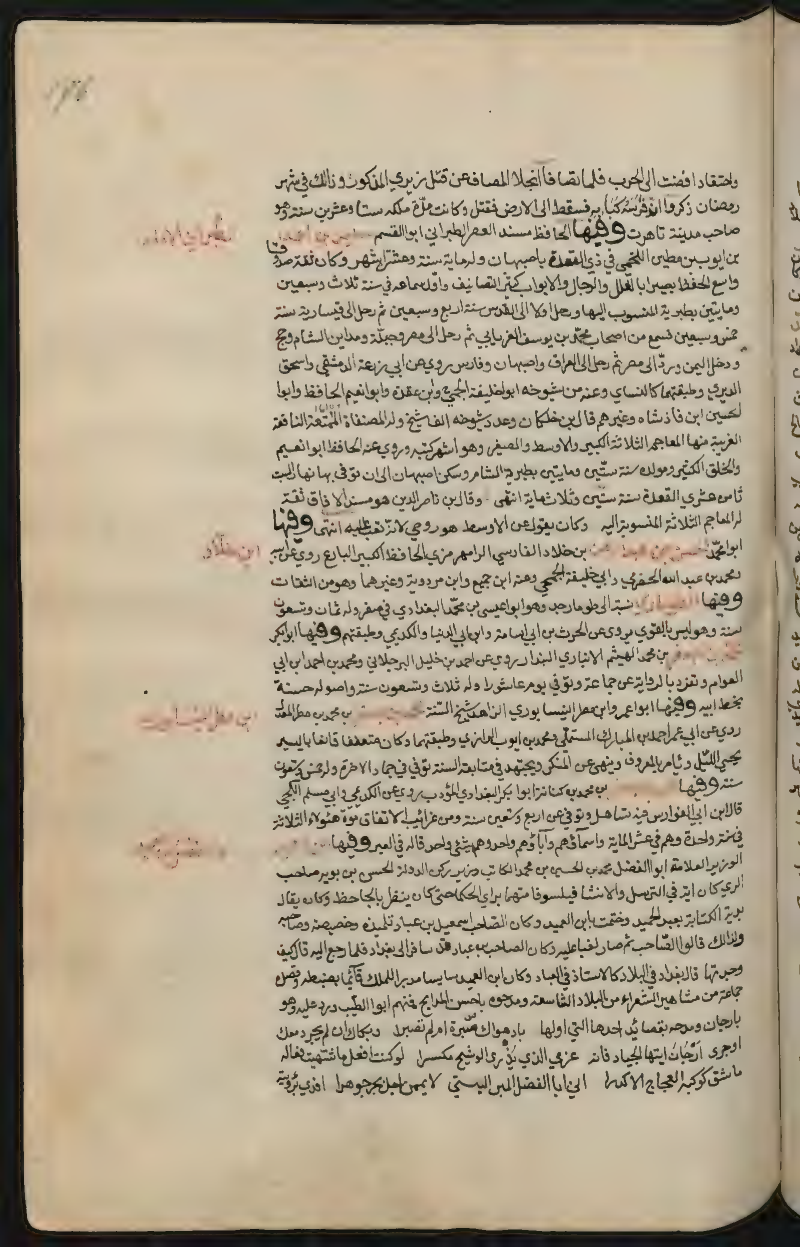 واحقاد افضت الى الحرب فلما تصافا انجلا المصاف عن قتل زيري المذكور وذالك في شهر
رمضان ذكروا ان فرسه كبا به فسقط الى الارض فقتل وكانت مدة ملكه ستا وعشرين سنة وهو
صاحب مدينة تاهرت وفيها الحافظ مسند العصر الطبراني ابو القسم سليمن بن احمد
بن ايوب بن مطير اللخمي في ذي القعدة باصبهان وله ماية سنة وعشرة اشهر وكان ثقة صدوقا
واسع الحفظ بصيرا بالعلل والرجال والابواب كثير التصانيف واول سماعه في سنة ثلاث وسبعين
ومايتين بطبرية المنسوب اليها ورحل اولا الى القدس سنة اربع وسبعين ثم رحل الى قيسارية سنة
خمس وسبعين فسمع من اصحاب محمد بن يوسف الفريابي ثم رحل الى حمص وجبلة ومداين الشام وحج
ودخل اليمن وردّ الى مصر ثم رحل الى العراق واصبهان وفارس روي عن ابي زرعة الدمشقي واسحق
الدبري وطبقتهما كالنساي وعنه من شيوخه ابو خليفة الجمحي وابن عقدة وابو نعيم الحافظ وابو ا
لحسين ابن فاذشاه وغيرهم قال ابن خلكان وعدد شيوخه الف شيخ وله المصنفاة الممتعة النافعة
الغريبة منها المعاجم الثلاثة الكبير والاوسط والصغير وهو اشهر كتبه وروي عنه الحافظ ابو نعيم
والخلق الكثير ومولده سنة ستين ومايتين بطبرية الشام وسكن اصبهان الى ان توفي بها نهار السبت
ثامن عشري القعدة سنة ستين وثلاث ماية انتهى وقال بن ناصر الدين هو مسند الافاق ثقة
له المعاجم الثلاثة المنسوبة اليه وكان يقول عن الاوسط هو روحي لانه تعب عليه انتهى وفيها
ابو محمد الحسن بن عبد الرحمن بن خلاد الفارسي الرامهرمزي الحافظ الكبير البارع روي عن ابيه
ومحمد بن عبد الله الحضرمي وابي خليفة الجمحي وعنه ابن جميع وابن مردوية وغيرهما وهو من الثقات
وفيها الطوماري نسبة الى طومار جد وهو ابو عيسى بن محمد البغدادي في صفر وله ثمان وتسعون
سنة وهو ليس بالقوي يروي عن الحرث بن ابي اسامة وابن ابي الدنيا والكديمي وطبقتهم وفيها ابو بكر
محمد بن جعفر بن محمد الهيثم الانباري البندار روي عن احمد بن خليل البرجلاني ومحمد بن احمد ابن ابي
العوام وتفرد بالرواية عن جماعة وتوفي يوم عاشورا وله ثلاث وتسعون سنة واصوله حسنة
بخط ابيه وفيها ابو عمرو ابن مطر النيسابوري الزاهد شيخ السنة محمد بن جعفر بن محمد بن مطر المعدل
روي عن ابي عمر احمد بن المبارك المستملي ومحمد بن ايوب الرازي وطبقتهما وكان متعففا قانعا باليسير
يحيي الليل ويامر بالمعروف وينهى عن المنكر ويجتهد في متابعة السنة توفي في جماد الاخرة وله خمس وتسعون
سنة وفيها بن محمد بن كنانة ابو بكر البغدادي المؤدب روي عن الكديمي وابي مسلم الكجي
قال ابن ابي الفوارس فيه تساهل وتوفي عن اربع وتسعين سنة ومن غرايب الاتفاق موة هئولاء الثلاثة
في سنة واحدة وهم في عشر الماية واسماؤهم وآباؤهم واحد وهم شي واحد قاله في العبر وفيها
الوزير العلامة ابو الفضل محمد بن الحسين بن محمد الكاتب وزير ركن الدولة الحسن بن بويه صاحب
الري كان اية في الترسل والانشا فيلسوفا متهما براي الحكما حتى كان ينظر بالجاحظ وكان يقال
بدية الكتابة بعبد الحميد وختمت بابن العميد وكان الصاحب اسمعيل بن عباد تلميذه وخصيصه وصاحبه
ولذالك قالوا الصاحب ثم صار لقبا عليه وكان الصاحب بن عباد قد سافر الى بغداد فلما رجع اليه قال كيف
وجدتها قال بغداد في البلاد كالاستاذ في العباد وكان ابن العميد سايسا مدبرا للملك قائما بضبطه وقصده
جماعة من مشاهير الشعراء من البلاد الشاسعة ومدحوه باحسن المدايح فمنهم ابو الطيب ورد عليه وهو
بارجان ومدحه بقصائد احدها التي اولها بادٍ هواك صبرة ام لم تصبرا وبكاك ان لم يجر دمعك
او جرى ارّجان ايتها الجياد فانه عزمي الذي يذر الوشيج مكسرا لو كنت افعل ما اشتهيت فعاله
ما شق كوكبه العجاج الاكدرا اني ابا الفضل المبر اليتي لا يممن اجل بحر جوهرا افتى برؤيته
ابن خلاد